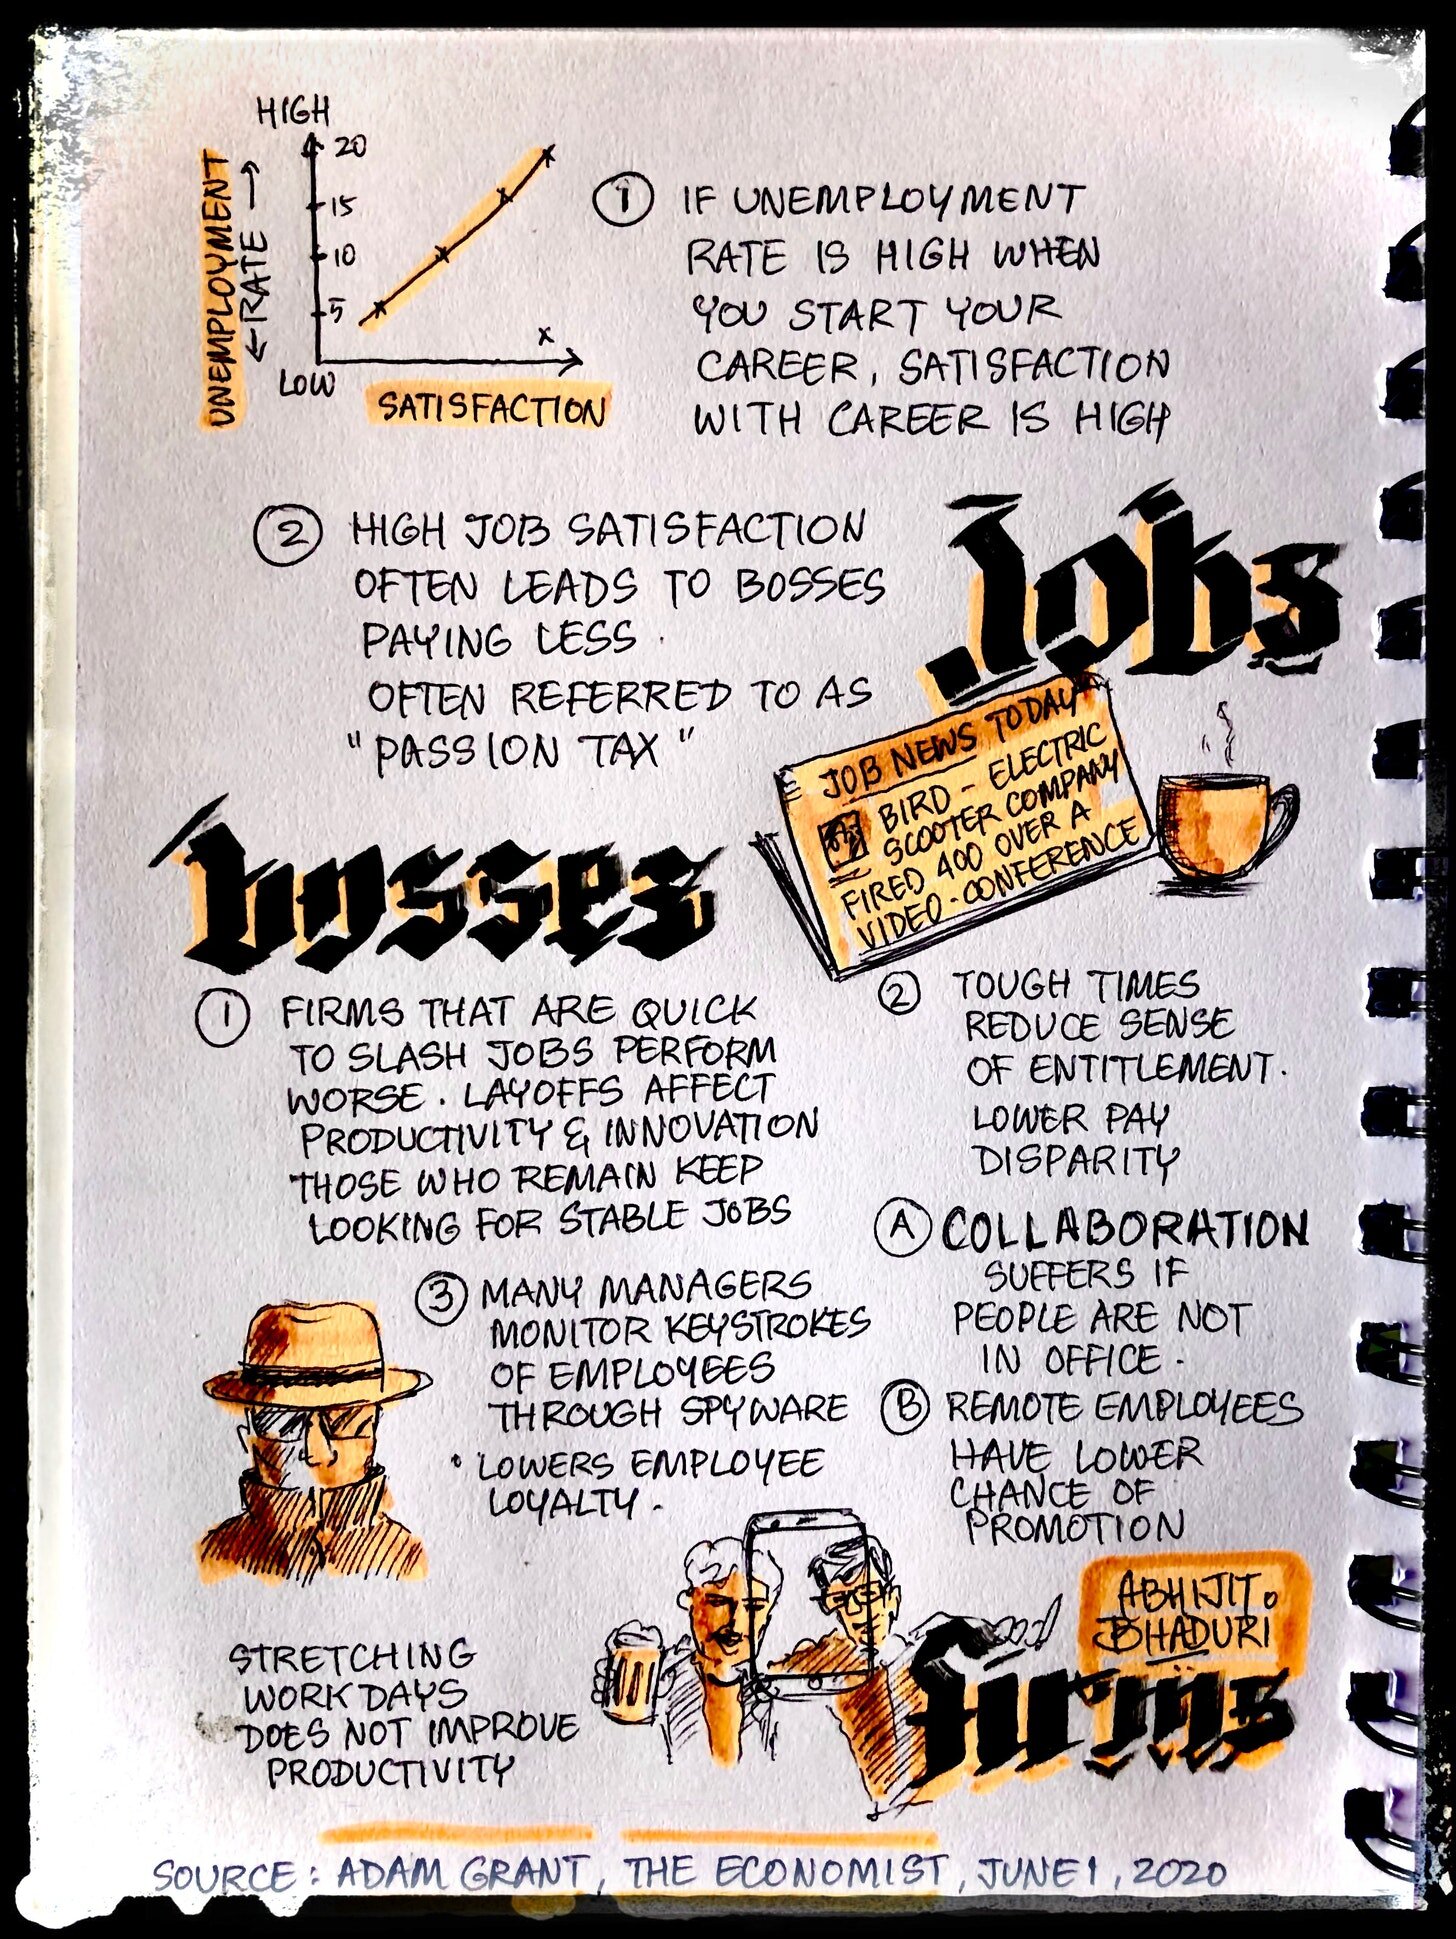 HIGH
20
15
10
5
LOW
UNEMPLOYMENT
RATE
SATISFACTION
x
1 IF UNEMPLOYMENT
RATE IS HIGH WHEN
YOU START YOUR
CAREER, SATISFACTION
WITH CAREER IS HIGH
2 HIGH JOB SATISFACTION
OFTEN LEADS TO BOSSES
PAYING LESS.
OFTEN REFERRED TO AS
"PASSION TAX"
Jobs
JOB NEWS TODAY
BIRD - ELECTRIC
SCOOTER COMPANY
FIRED 400 OVER A
VIDEO-CONFERENCE
bosses
1 FIRMS THAT ARE QUICK
TO SLASH JOBS PERFORM
WORSE. LAYOFFS AFFECT
PRODUCTIVITY & INNOVATION
THOSE WHO REMAIN KEEP
LOOKING FOR STABLE JOBS
2 TOUGH TIMES
REDUCE SENSE
OF ENTITLEMENT.
LOWER PAY
DISPARITY
3 MANY MANAGERS
MONITOR KEYSTROKES
OF EMPLOYEES
THROUGH SPYWARE
• LOWERS EMPLOYEE
LOYALTY.
A COLLABORATION
SUFFERS IF
PEOPLE ARE NOT
IN OFFICE.
B REMOTE EMPLOYEES
HAVE LOWER
CHANCE OF
PROMOTION
ABHIJIT
BHADURI
firms
STRETCHING
WORKDAYS
DOES NOT IMPROVE
PRODUCTIVITY
SOURCE: ADAM GRANT, THE ECONOMIST, JUNE 1, 2020